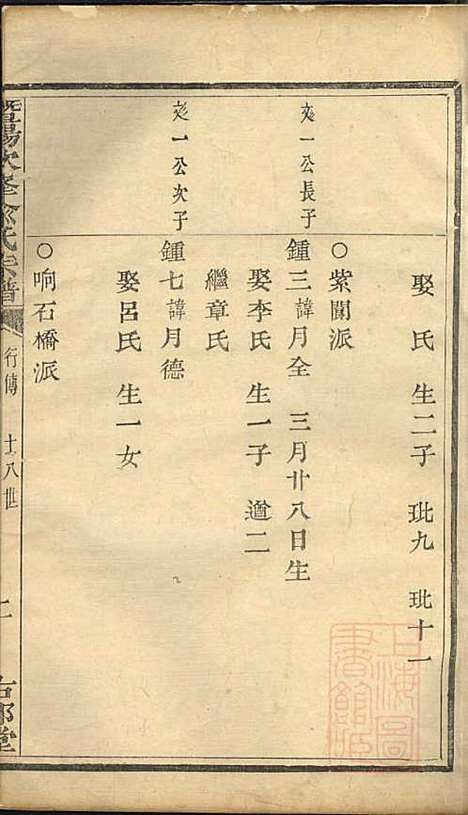 娶 氏 生二子 玭九 玭十一
○紫閬派
㚇一公長子
鍾三諱月全 三月廿八日生
娶李氏 生一子 遒二
繼章氏
㚇一公次子
鍾七諱月德
娶呂氏 生一女
○响石橋派
暨陽次峯俞氏宗譜
行傳 十八世
二
右鄰堂
上海圖書館藏